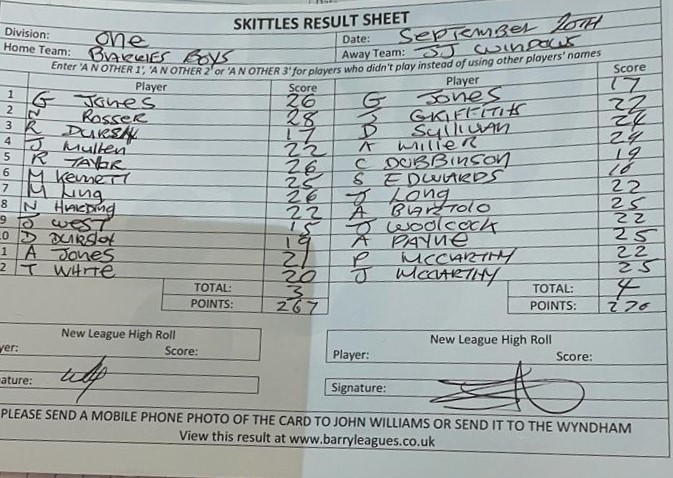 SKITTLES RESULT SHEET
Division: One Date: September 20TH
Home Team: BARRIES BOYS Away Team: SJ WINDOWS
Enter 'A N OTHER 1', 'A N OTHER 2' or 'A N OTHER 3' for players who didn't play instead of using other players' names
Player Score Player Score
1 G Jones 26 G Jones 17
2 N Rosser 28 J GRIFFITHS 22
3 R 17 D Sullivan 24
4 J Mullen 22 A Miller 24
5 R TAYLOR 26 C DOBBINSON 19
6 M Kennett 25 S EDWARDS
7 M King 26 J Long 22
8 N HARDING 22 A BARTOLO 25
9 J WEST 15 J Woolcock 22
0 D 19 A PAYNE 25
1 A Jones 21 P MCCARTHY 22
2 T WHITE 20 J MCCARTHY 25
TOTAL: 3 TOTAL: 4
POINTS: 267 POINTS: 270
New League High Roll New League High Roll
yer: Score: Player: Score:
ature: Signature:
PLEASE SEND A MOBILE PHONE PHOTO OF THE CARD TO JOHN WILLIAMS OR SEND IT TO THE WYNDHAM
View this result at www.barryleagues.co.uk